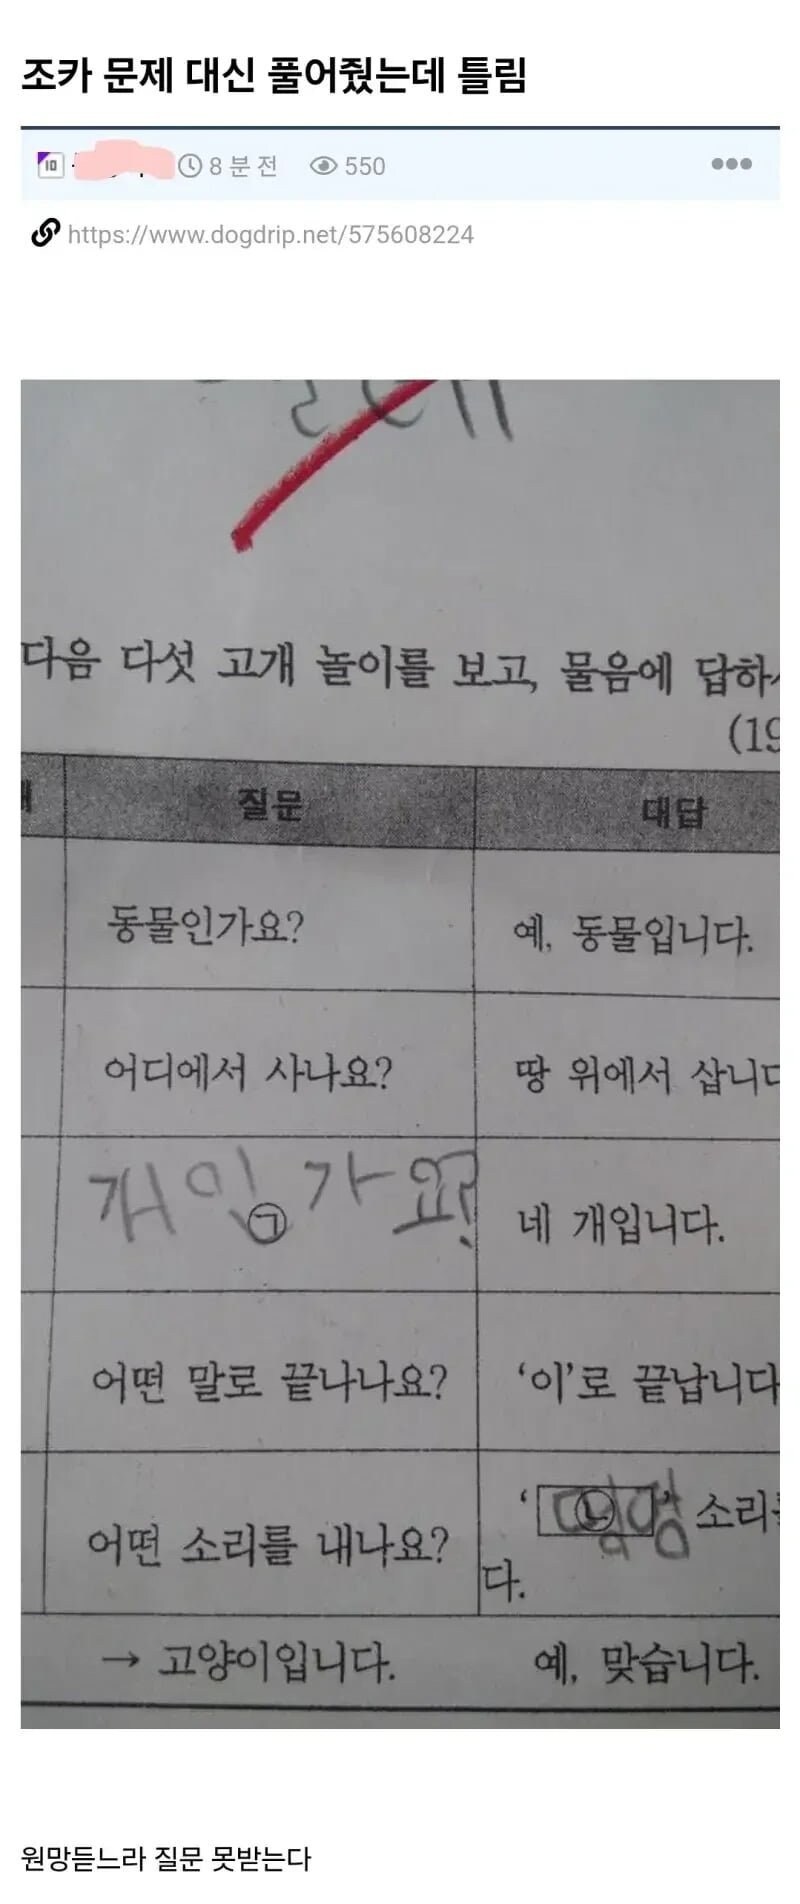 조카 문제 대신 풀어줬는데 틀림
10
8 분 전
550
https://www.dogdrip.net/575608224
다음 다섯 고개 놀이를 보고, 물음에 답하
(19
질문 대답
동물인가요? 예, 동물입니다.
어디에서 사나요? 땅 위에서 삽니다
개인가요? ㉠ 네 개입니다.
어떤 말로 끝나나요? ‘이’로 끝납니다
어떤 소리를 내나요? ‘ ㉡ ’ 소리
다.
→ 고양이입니다. 예, 맞습니다.
원망듣느라 질문 못받는다